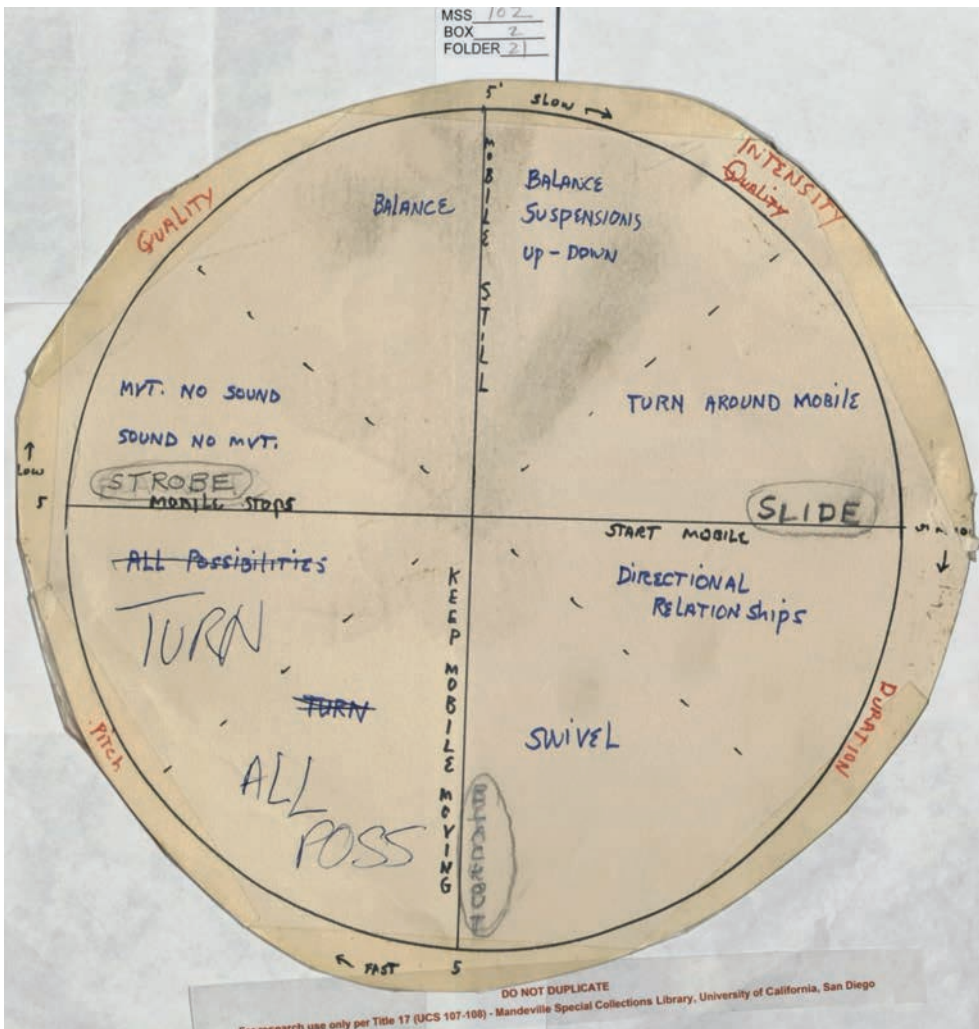 MSS 102
BOX 2
FOLDER 21
5'
SLOW →
INTENSITY
Quality
QUALITY
MOBILE STILL
BALANCE
BALANCE
SUSPENSIONS
UP - DOWN
MVT. NO SOUND
SOUND NO MVT.
TURN AROUND MOBILE
↑
LOW
STROBE
SLIDE
5
MOBILE STOPS
START MOBILE
ALL POSSIBILITIES
TURN
DIRECTIONAL
RELATIONSHIPS
KEEP MOBILE MOVING
TURN
SWIVEL
Pitch
DURATION
ALL
POSS
← FAST
5
DO NOT DUPLICATE
research use only per Title 17 (UCS 107-108) - Mandeville Special Collections Library, University of California, San Diego